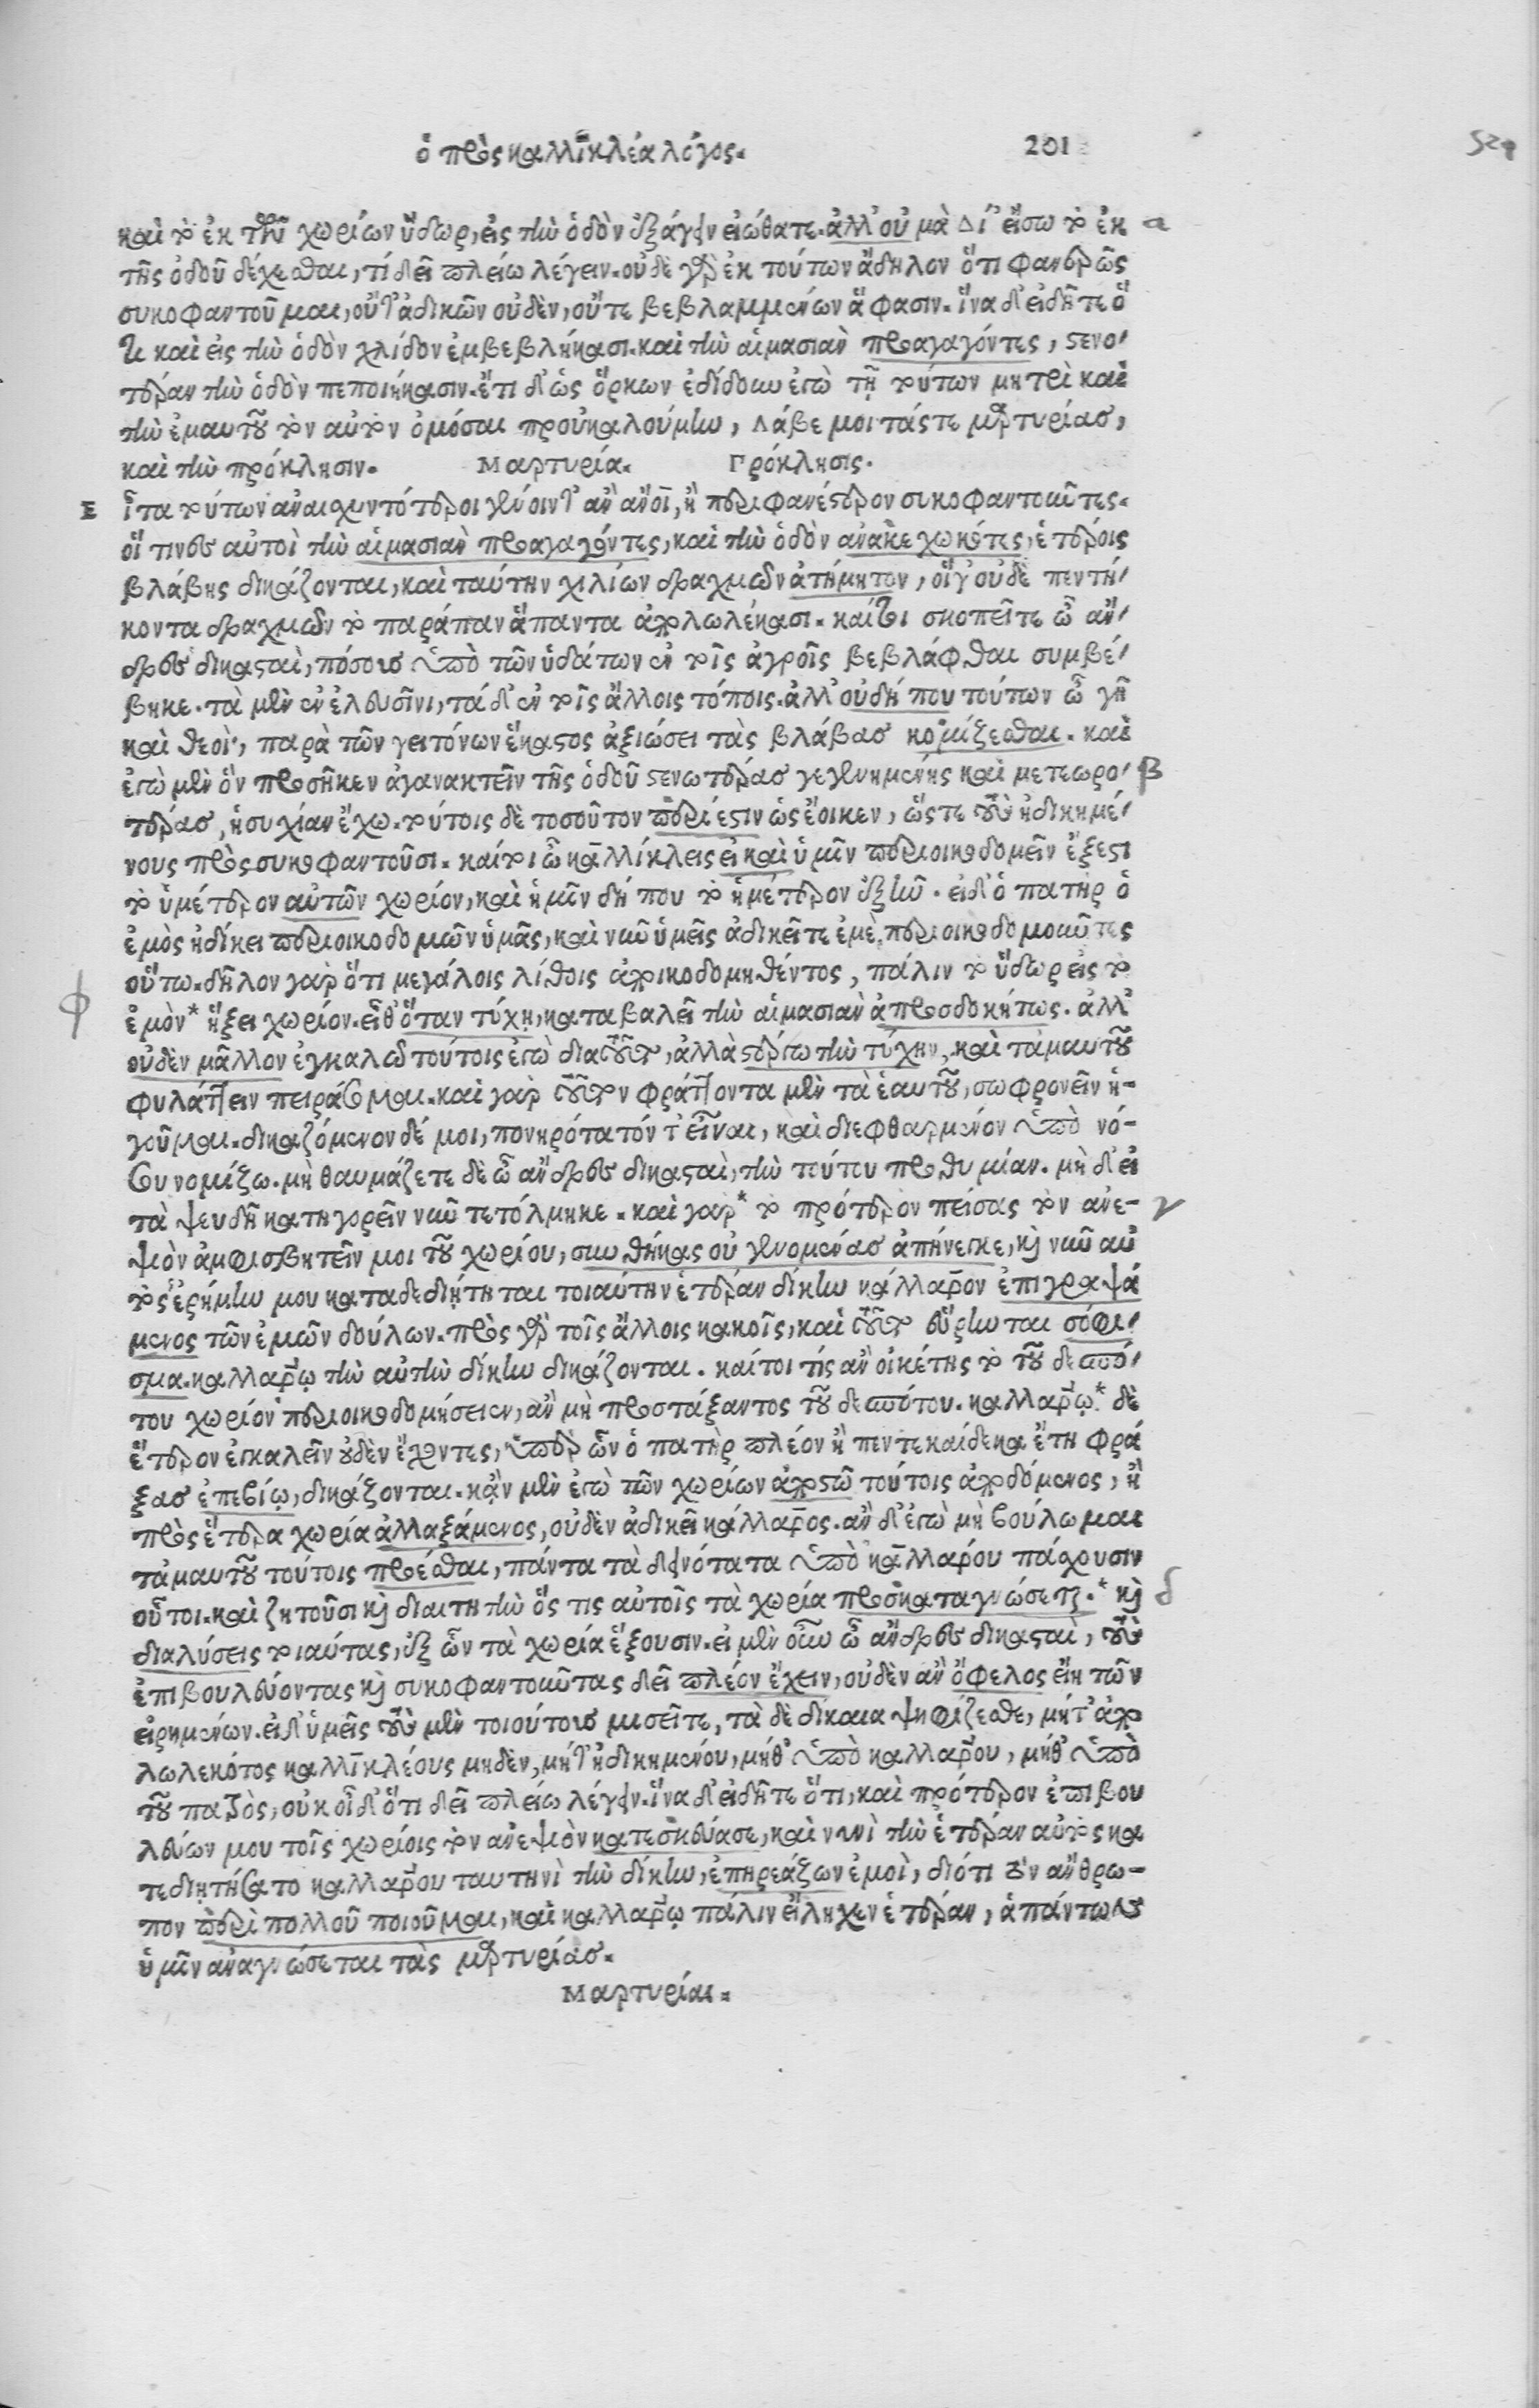 ὁ πρὸς καλλικλέα λόγος. 201
καὶ τὸ ἐκ τῶν χωρίων ὕδωρ, εἰς τὴν ὁδὸν ἐξάγειν εἰώθατε. ἀλλ' οὐ μὰ Δί' εἴσω τὸ ἐκ α
τῆς ὁδοῦ δέχεσθαι, τί δεῖ πλείω λέγειν. οὐδὲ γὰρ ἐκ τούτων ἄδηλον ὅτι φανερῶς
συκοφαντοῦμαι, οὔτ' ἀδικῶν οὐδὲν, οὔτε βεβλαμμένων ἅ φασιν. ἵνα δ' εἰδῆτε ὅ
τι καὶ εἰς τὴν ὁδὸν χλίδον ἐμβεβλήκασι. καὶ τὴν αἱμασιὰν προαγαγόντες, στενο/
τέραν τὴν ὁδὸν πεποιήκασιν. ἔτι δ' ὡς ὅρκων ἐδίδουν ἐγὼ τῇ τούτων μητρὶ καὶ
τὴν ἐμαυτοῦ τὸν αὐτὸν ὀμόσαι προὐκαλούμην, Λάβε μοι τάς τε μαρτυρίας,
καὶ τὴν πρόκλησιν. Μαρτυρία. Πρόκλησις.
Ε ἶτα τούτων ἀναισχυντότεροι γένοιντ' ἂν ἄνθρωποι, ἢ περιφανέστερον συκοφαντοῦντες.
οἵ τινες αὐτοὶ τὴν αἱμασιὰν προαγαγόντες, καὶ τὴν ὁδὸν ἀνακεχωκότες, ἑτέροις
βλάβης δικάζονται, καὶ ταύτην χιλίων δραχμῶν ἀτίμητον, οἵ γ' οὐδὲ πεντή/
κοντα δραχμῶν τὸ παράπαν ἅπαντα ἀπολωλέκασι. καίτοι σκοπεῖτε ὦ ἄν/
δρες δικασταὶ, πόσους ὑπὸ τῶν ὑδάτων ἐν τοῖς ἀγροῖς βεβλάφθαι συμβέ/
βηκε. τὰ μὲν ἐν ἐλευσῖνι, τὰ δ' ἐν τοῖς ἄλλοις τόποις. ἀλλ' οὐδή που τούτων ὦ γῆ
καὶ θεοὶ, παρὰ τῶν γειτόνων ἕκαστος ἀξιώσει τὰς βλάβας κομίζεσθαι. καὶ
ἐγὼ μὲν ὃν προσῆκεν ἀγανακτεῖν τῆς ὁδοῦ στενωτέρας γεγενημένης καὶ μετεωρο/ β
τέρας, ἡσυχίαν ἔχω. τούτοις δὲ τοσοῦτον περίεστιν ὡς ἔοικεν, ὥστε τοὺς ἠδικημέ/
νους πρὸς συκοφαντοῦσι. καίτοι ὦ καλλίκλεις εἰ καὶ ὑμῖν περιοικοδομεῖν ἔξεστι
τὸ ὑμέτερον αὐτῶν χωρίον, καὶ ἡμῖν δή που τὸ ἡμέτερον ἐξῆν. εἰ δ' ὁ πατὴρ ὁ
ἐμὸς ἠδίκει περιοικοδομῶν ὑμᾶς, καὶ νῦν ὑμεῖς ἀδικεῖτε ἐμὲ, περιοικοδομοῦντες
οὕτω. δῆλον γὰρ ὅτι μεγάλοις λίθοις ἀποικοδομηθέντος, πάλιν τὸ ὕδωρ εἰς τὸ
φ ἐμὸν* ἥξει χωρίον. εἶθ' ὅταν τύχῃ, καταβαλεῖ τὴν αἱμασιὰν ἀπροσδοκήτως. ἀλλ'
οὐδὲν μᾶλλον ἐγκαλῶ τούτοις ἐγὼ διὰ τοῦτο, ἀλλὰ στέργω τὴν τύχην, καὶ τἀμαυτοῦ
φυλάττειν πειράσομαι. καὶ γὰρ τοῦτον φράττοντα μὲν τὰ ἑαυτοῦ, σωφρονεῖν ἡ-
γοῦμαι. δικαζόμενον δέ μοι, πονηρότατόν τ' εἶναι, καὶ διεφθαρμένον ὑπὸ νό-
σου νομίζω. μὴ θαυμάζετε δὲ ὦ ἄνδρες δικασταὶ, τὴν τούτου προθυμίαν. μὴ δ' εἰ
τὰ ψευδῆ κατηγορεῖν νῦν τετόλμηκε. καὶ γὰρ* τὸ πρότερον πείσας τὸν ἀνε- γ
ψιὸν ἀμφισβητεῖν μοι τοῦ χωρίου, συνθήκας οὐ γενομένας ἀπήνεγκε, καὶ νῦν αὐ
τὸς ἐρήμην μου καταδεδιῄτηται τοιαύτην ἑτέραν δίκην κάλλαρον ἐπιγραψά
μενος τῶν ἐμῶν δούλων. πρὸς γὰρ τοῖς ἄλλοις κακοῖς, καὶ τοῦτο εὕρηνται σόφι/
σμα. καλλάρῳ τὴν αὐτὴν δίκην δικάζονται. καίτοι τίς ἂν οἰκέτης τὸ τοῦ δεσπό/
του χωρίον περιοικοδομήσειεν, ἂν μὴ προστάξαντος τοῦ δεσπότου. καλλάρῳ* δὲ
ἕτερον ἐγκαλεῖν οὐδὲν ἔχοντες, ὑπὲρ ὧν ὁ πατὴρ πλέον ἢ πεντεκαίδεκα ἔτη φρά
ξας ἐπεβίω, δικάζονται. κἂν μὲν ἐγὼ τῶν χωρίων ἀποστῶ τούτοις ἀποδόμενος, ἢ
πρὸς ἕτερα χωρία ἀλλαξάμενος, οὐδὲν ἀδικεῖ κάλλαρος. ἂν δ' ἐγὼ μὴ βούλωμαι
τἀμαυτοῦ τούτοις προέσθαι, πάντα τὰ δεινότατα ὑπὸ καλλάρου πάσχουσιν
οὗτοι. καὶ ζητοῦσι καὶ διαιτητὴν ὅς τις αὐτοῖς τὰ χωρία προσκαταγνώσεται.* καὶ δ
διαλύσεις τοιαύτας, ἐξ ὧν τὰ χωρία ἕξουσιν. εἰ μὲν οὖν ὦ ἄνδρες δικασταὶ, τοὺς
ἐπιβουλεύοντας καὶ συκοφαντοῦντας δεῖ πλέον ἔχειν, οὐδὲν ἂν ὄφελος εἴη τῶν
εἰρημένων. εἰ δ' ὑμεῖς τοὺς μὲν τοιούτους μισεῖτε, τὰ δὲ δίκαια ψηφίζεσθε, μήτ' ἀπο
λωλεκότος καλλικλέους μηδὲν, μήτ' ἠδικημένου, μήθ' ὑπὸ καλλάρου, μήθ' ὑπὸ
τοῦ πατρὸς, οὐκ οἶδ' ὅτι δεῖ πλείω λέγειν. ἵνα δ' εἰδῆτε ὅτι, καὶ πρότερον ἐπιβου
λεύων μου τοῖς χωρίοις τὸν ἀνεψιὸν κατεσκεύασε, καὶ νυνὶ τὴν ἑτέραν αὐτὸς κα
τεδιῃτήσατο καλλάρου ταυτηνὶ τὴν δίκην, ἐπηρεάζων ἐμοὶ, διότι τὸν ἄνθρω-
πον περὶ πολλοῦ ποιοῦμαι, καὶ καλλάρῳ πάλιν εἴληχεν ἑτέραν, ἁπάντων
ὑμῖν ἀναγνώσεται τὰς μαρτυρίας.
Μαρτυρίαι.